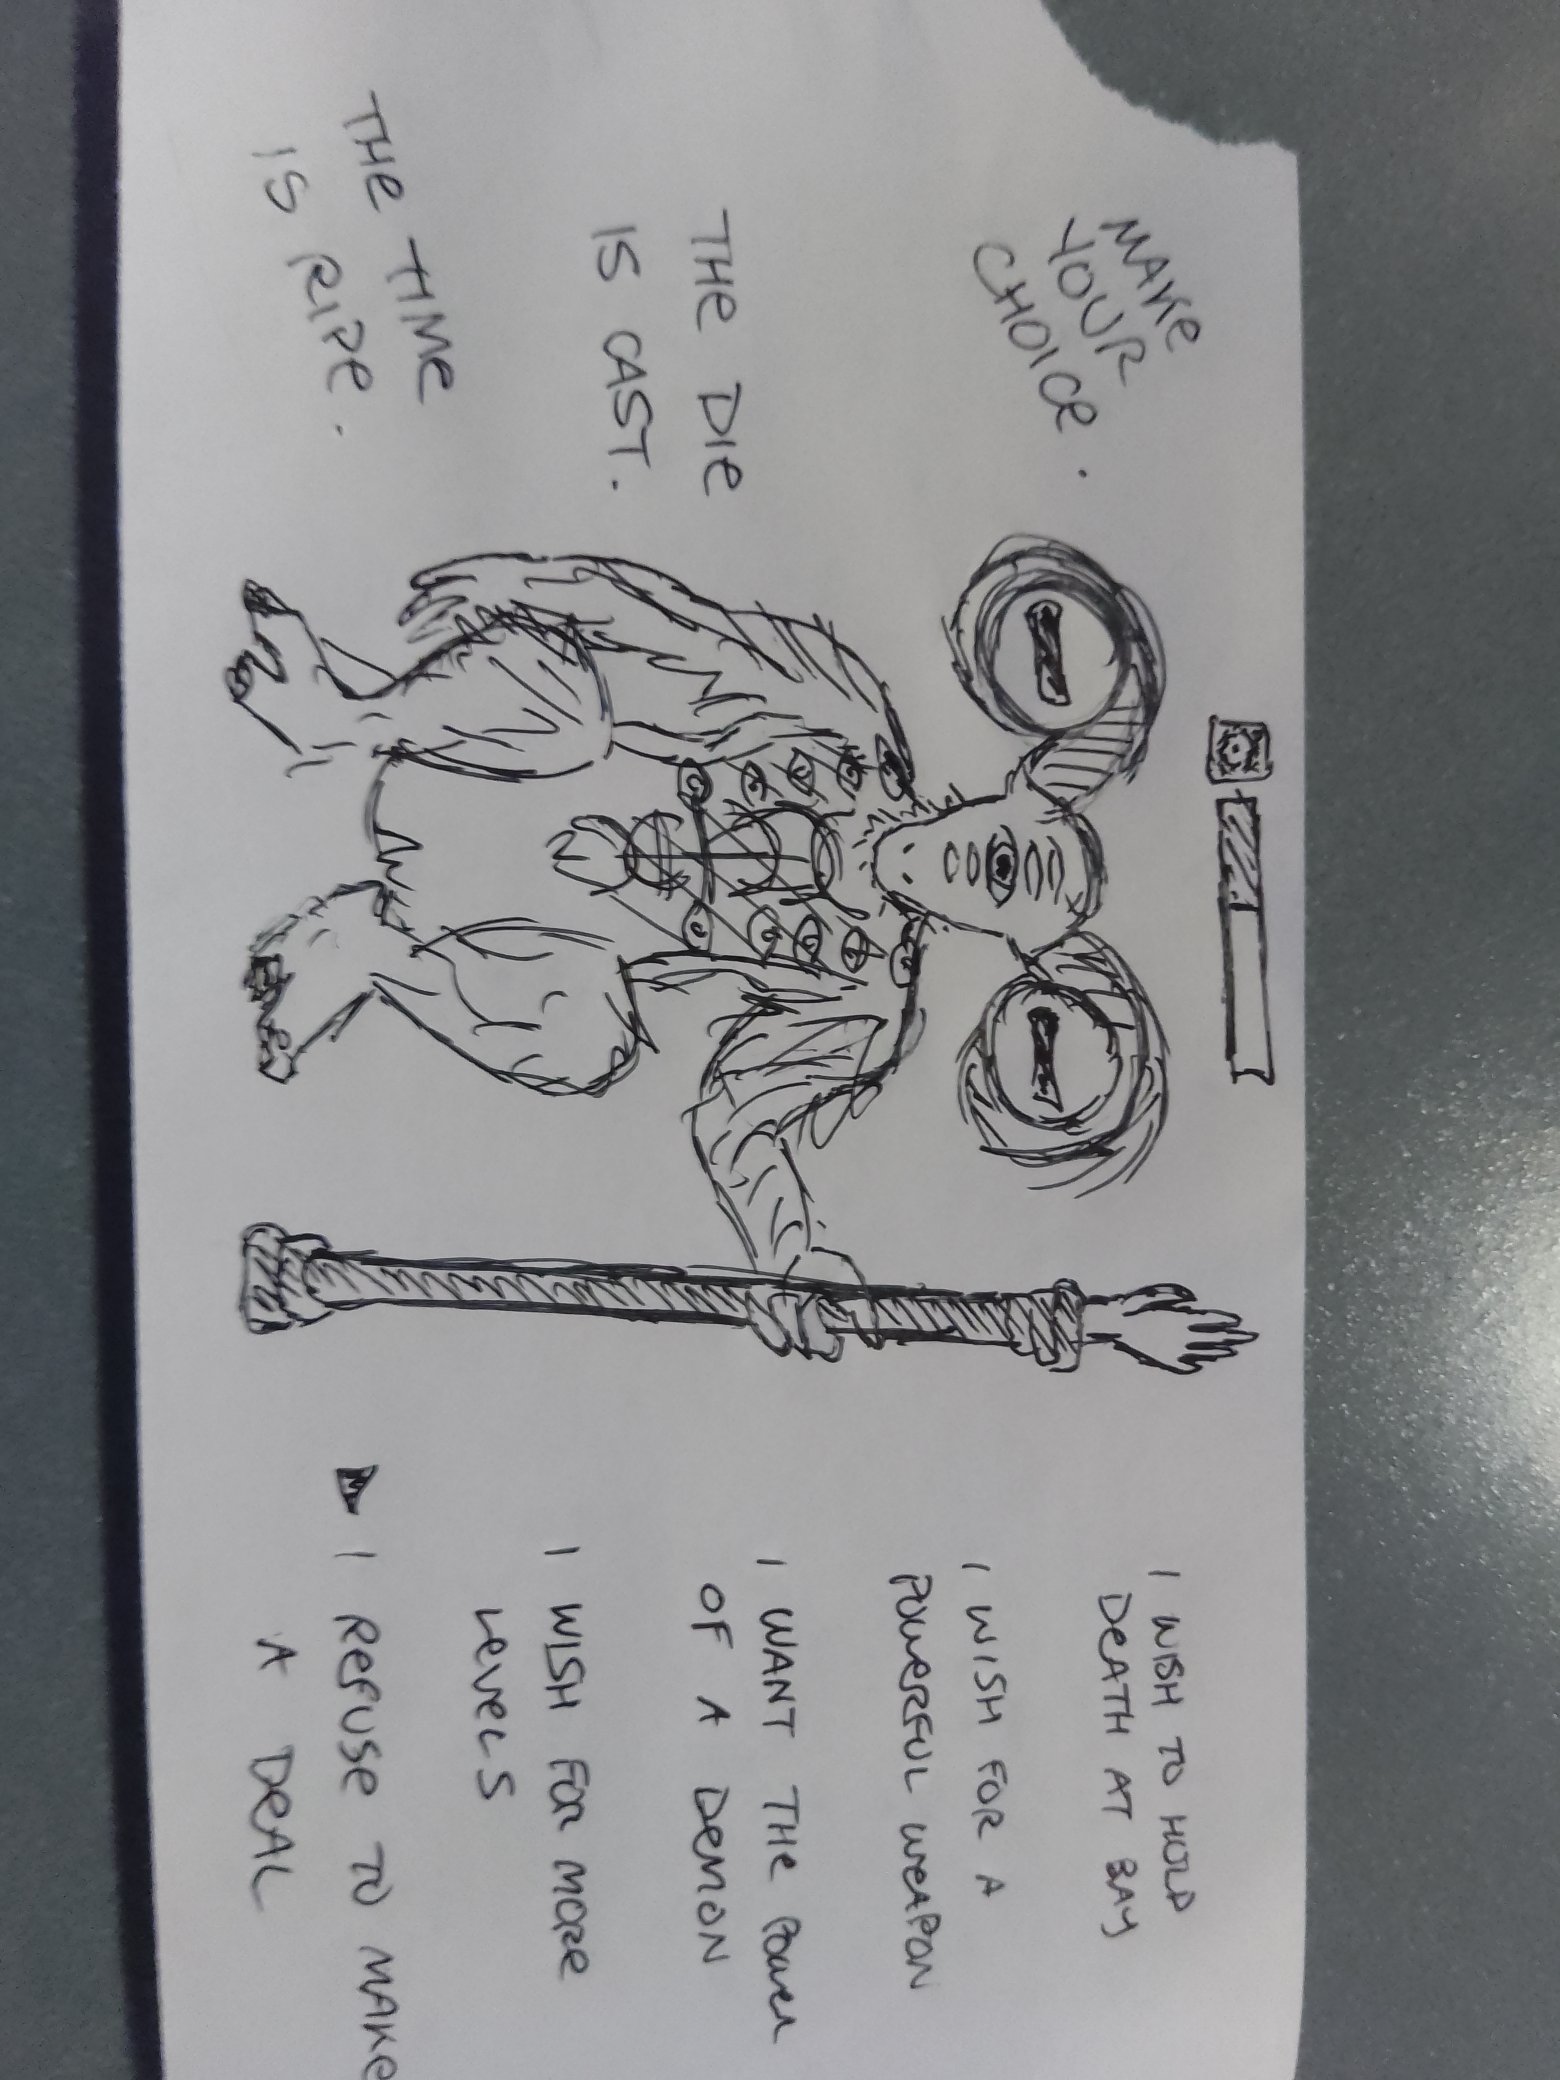 MAKE
YOUR
CHOICE.
THE DIE
IS CAST.
THE TIME
IS RIPE.
I WISH TO HOLD
DEATH AT BAY
I WISH FOR A
POWERFUL WEAPON
I WANT THE POWER
OF A DEMON
I WISH FOR MORE
LEVELS
I REFUSE TO MAKE
A DEAL